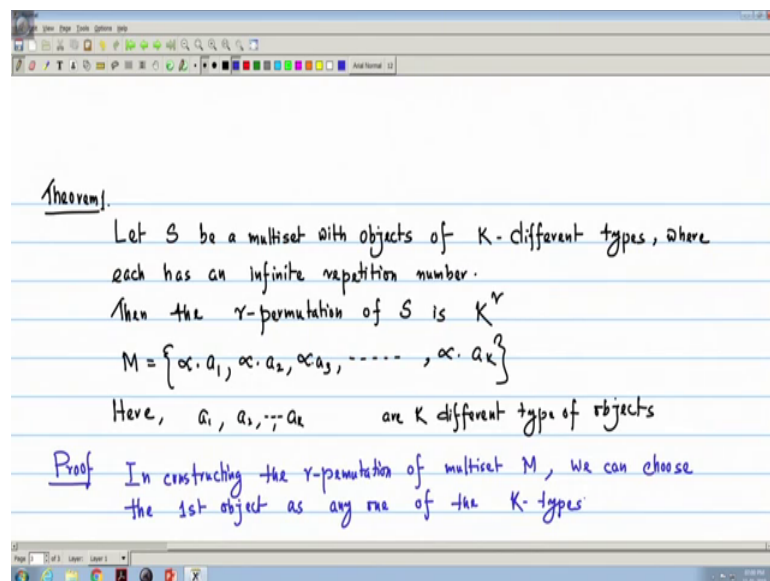 View Page Tools Options Help
Arial Normal 12
Theorem 1.
Let S be a multiset with objects of K-different types, where
each has an infinite repetition number.
Then the r-permutation of S is K^r
M = { ∝. a₁, ∝. a₂, ∝a₃, ‑‑‑‑‑ , ∝. aₖ }
Here, a₁, a₂, ‑‑, aₖ are K different type of objects
Proof In constructing the r-pemutation of multiset M, we can choose
the 1st object as any one of the K- types
Page 3 of 3 Layer: Layer 1